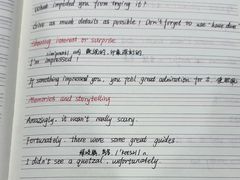 What impeded you from trying it?
Give as much details as possible! Don't forget to use
Showing interest or surprise
I'm impressed!
If something impressed you, you feel great admiration for it.
Memories and storytelling
Amazingly, it wasn't really scary.
Fortunately, there were some great guides.
I didn't see a quetzal, unfortunately.